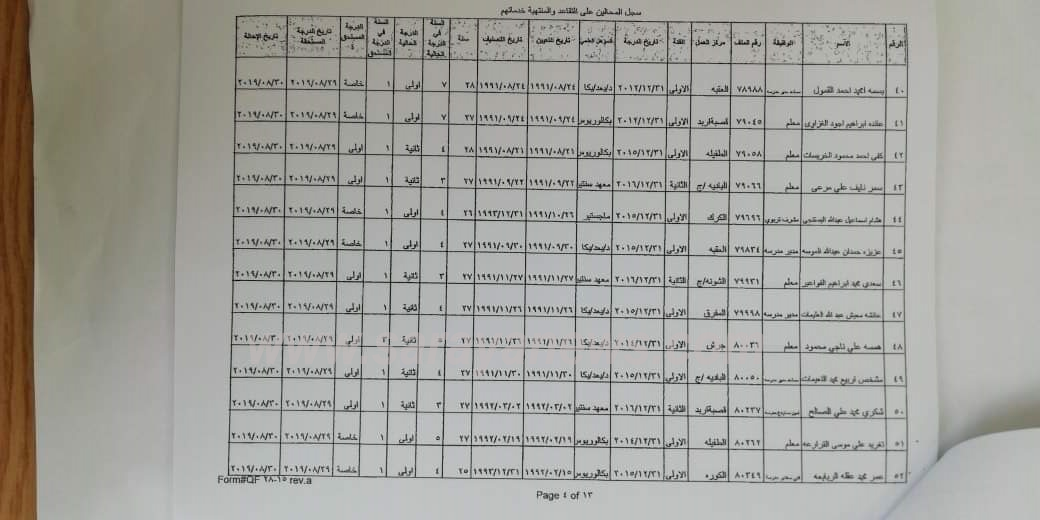 سجل المحالين على التقاعد والمنتهية خدماتهم
الرقم الاسم الوظيفة رقم الملف مركز العمل الفئة تاريخ الدرجة المؤهل العلمي تاريخ التعيين تاريخ التصنيف سنة السنة في الدرجة الحالية الدرجة الحالية السنة في الدرجة المستحق الدرجة المستحق تاريخ الدرجة المستحقة تاريخ الإحالة
٤٠ بسمه محمد احمد ٧٨٩٨٨ العقبه الاولى ٢٠١٢/١٢/٣١ د/بعد/بكا ١٩٩١/٠٨/٢٤ ١٩٩١/٠٨/٢٤ ٢٨ ٧ اولى ١ خاصة ٢٠١٩/٠٨/٢٩ ٢٠١٩/٠٨/٣٠
٤١ عائده ابراهيم اجود الغزاوى معلم ٧٩٠٤٥ قصبة اربد الاولى ٢٠١٢/١٢/٣١ بكالوريوس ١٩٩١/٠٩/٢٤ ١٩٩١/٠٩/٢٤ ٢٧ ٧ اولى ١ خاصة ٢٠١٩/٠٨/٢٩ ٢٠١٩/٠٨/٣٠
٤٢ كفى احمد محمود الخريسات معلم ٧٩٠٥٨ الطفيله الاولى ٢٠١٥/١٢/٣١ بكالوريوس ١٩٩١/٠٨/٢١ ١٩٩١/٠٨/٢١ ٢٨ ٤ ثانية ١ اولى ٢٠١٩/٠٨/٢٩ ٢٠١٩/٠٨/٣٠
٤٣ سمر نايف علي مرعى معلم ٧٩٠٦٦ الباديه /ج الثانية ٢٠١٦/١٢/٣١ معهد سنتين ١٩٩١/٠٩/٢٢ ١٩٩١/٠٩/٢٢ ٢٧ ٣ ثانية ١ اولى ٢٠١٩/٠٨/٢٩ ٢٠١٩/٠٨/٣٠
٤٤ هشام اسماعيل عبدالله مشرف تربوي ٧٩٦٩٦ الكرك الاولى ٢٠١٥/١٢/٣١ ماجستير ١٩٩١/١٠/٢٦ ١٩٩٣/١٢/٣١ ٢٦ ٤ اولى ١ خاصة ٢٠١٩/٠٨/٢٩ ٢٠١٩/٠٨/٣٠
٤٥ عزيزه حمدان عبدالله مدير مدرسه ٧٩٨٣٤ العقبه الاولى ٢٠١٥/١٢/٣١ د/بعد/بكا ١٩٩١/٠٩/٣٠ ١٩٩١/٠٩/٣٠ ٢٧ ٤ اولى ١ خاصة ٢٠١٩/٠٨/٢٩ ٢٠١٩/٠٨/٣٠
٤٦ سعدي محمد ابراهيم الفواعير معلم ٧٩٩٣١ الشونه/ج الثانية ٢٠١٦/١٢/٣١ معهد سنتين ١٩٩١/١١/٢٧ ١٩٩١/١١/٢٧ ٢٧ ٣ ثانية ١ اولى ٢٠١٩/٠٨/٢٩ ٢٠١٩/٠٨/٣٠
٤٧ عائشه عبد الله العليمات مدير مدرسه ٧٩٩٩٨ المفرق الاولى ٢٠١٥/١٢/٣١ د/بعد/بكا ١٩٩١/١١/٢٦ ١٩٩١/١١/٢٦ ٢٧ ٤ ثانية ١ اولى ٢٠١٩/٠٨/٢٩ ٢٠١٩/٠٨/٣٠
٤٨ همسه علي ناجي محمود معلم ٨٠٠٣٦ جرش الاولى ٢٠١٤/١٢/٣١ د/بعد/بكا ١٩٩١/١١/٢٦ ١٩٩١/١١/٢٦ ٢٧ ٥ ثانية اولى ٢٠١٩/٠٨/٢٩ ٢٠١٩/٠٨/٣٠
٤٩ مشخص اربيع محمد النعيمات ٨٠٠٥٠ الباديه /ج الاولى ٢٠١٥/١٢/٣١ د/بعد/بكا ١٩٩١/١١/٣٠ ١٩٩١/١١/٣٠ ٢٧ ٤ ثانية ١ اولى ٢٠١٩/٠٨/٢٩ ٢٠١٩/٠٨/٣٠
٥٠ شكري محمد علي الصالح ٨٠٢٣٧ قصبة اربد الثانية ٢٠١٦/١٢/٣١ معهد سنتين ١٩٩٢/٠٣/٠٢ ١٩٩٢/٠٣/٠٢ ٢٧ ٣ ثانية ١ اولى ٢٠١٩/٠٨/٢٩ ٢٠١٩/٠٨/٣٠
٥١ تغريد علي موسى القرارعه معلم ٨٠٢٦٢ الطفيله الاولى ٢٠١٤/١٢/٣١ بكالوريوس ١٩٩٢/٠٢/١٩ ١٩٩٢/٠٢/١٩ ٢٧ ٥ اولى ١ خاصة ٢٠١٩/٠٨/٢٩ ٢٠١٩/٠٨/٣٠
٥٢ عمر محمد عقله الربابعه ٨٠٣٤٩ الكوره الاولى ٢٠١٥/١٢/٣١ بكالوريوس ١٩٩٢/٠٢/١٥ ١٩٩٣/١٢/٣١ ٢٥ ٤ اولى ١ خاصة ٢٠١٩/٠٨/٢٩ ٢٠١٩/٠٨/٣٠
Form#QF ٢٨-١٥ rev.a
Page ٤ of ١٣